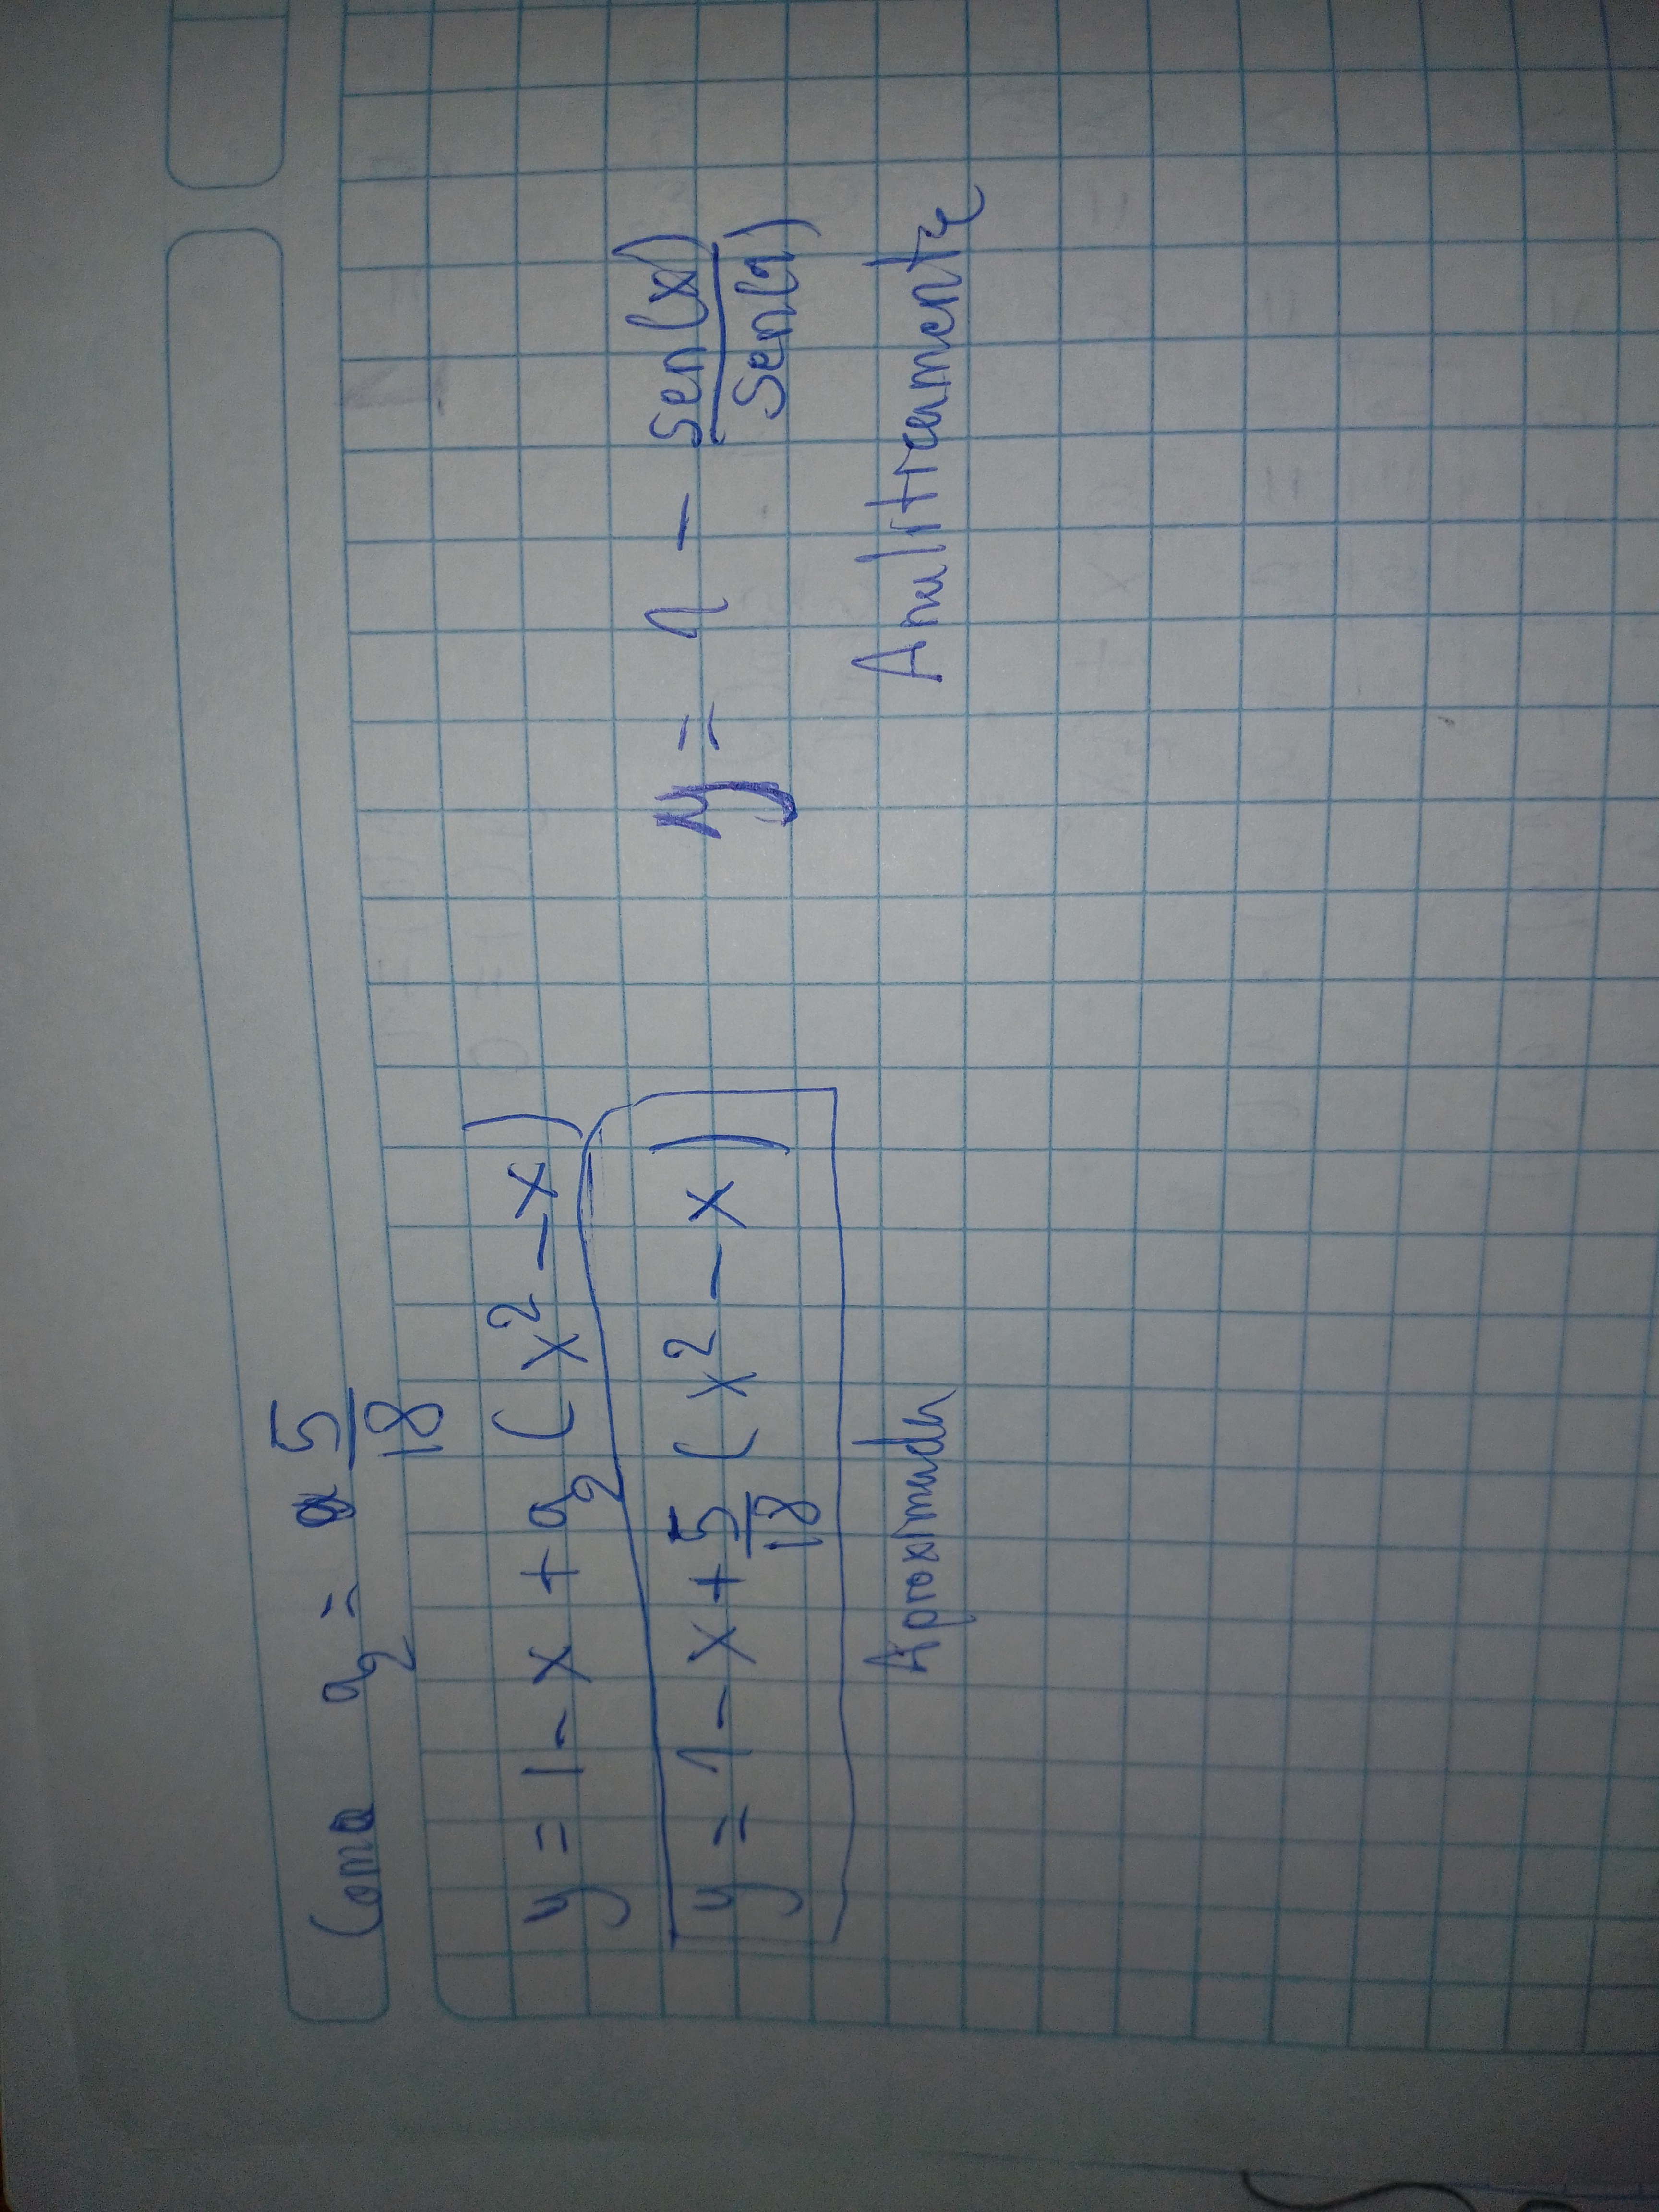 Como a₂ = 5/18
y = 1 - x + a₂ (x² - x)
y = 1 - x + 5/18 (x² - x)
Aproximada
y = 1 - sen(x)/sen(1)
Analiticamente